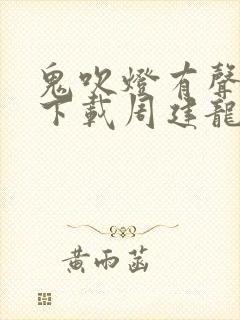 鬼吹燈有聲
下載周建龍
黃雨菡